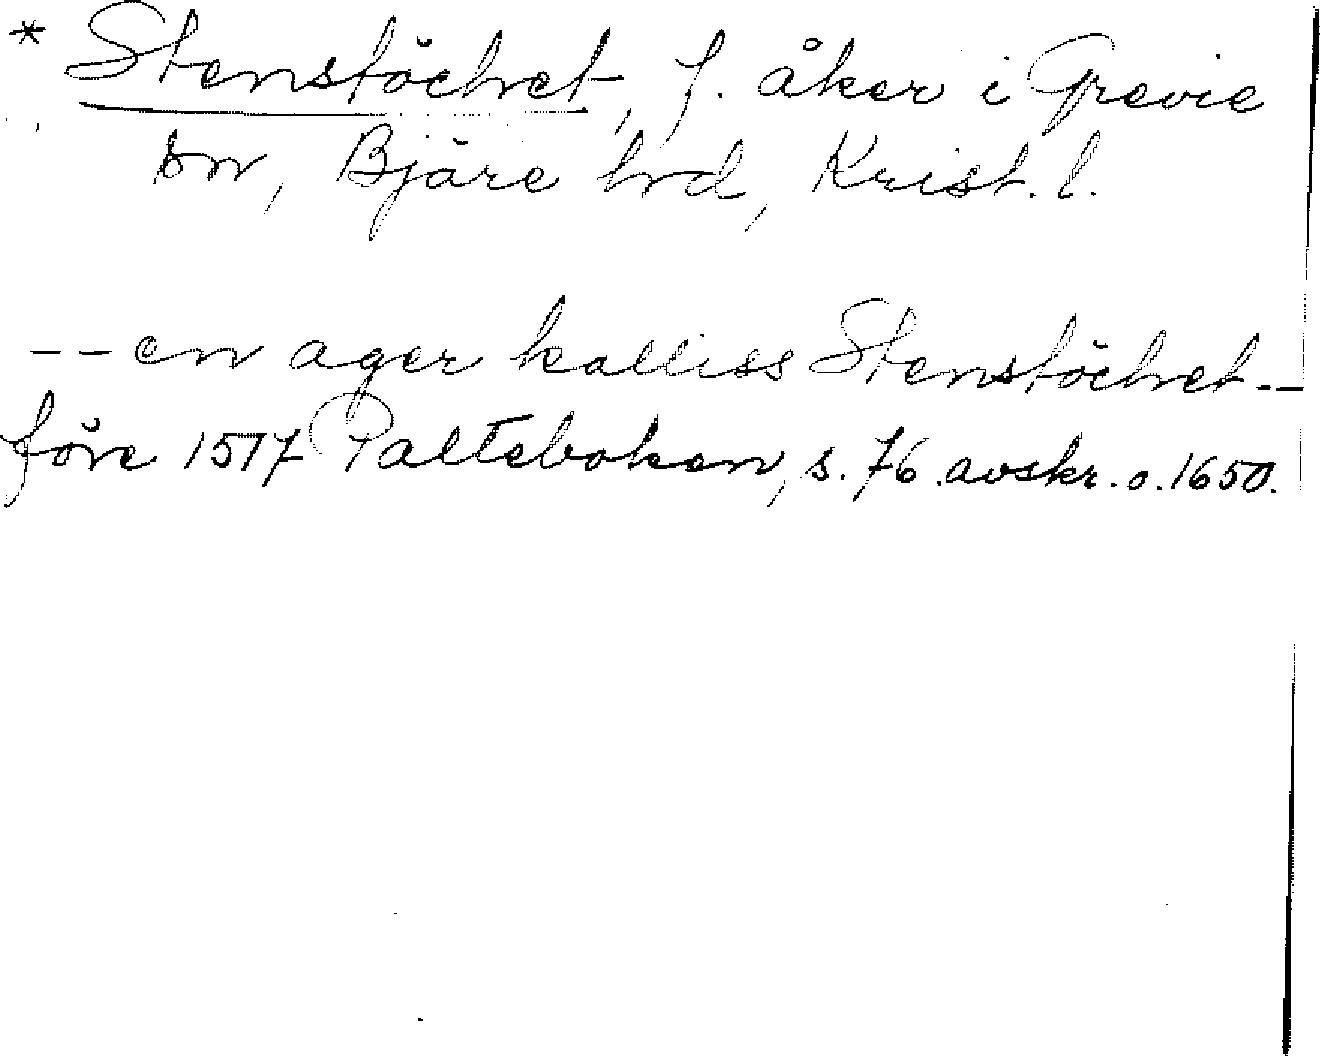 * Stenstöchet, f. åker i Grevie
sn, Bjäre hrd, Krist. l.
-- en ager kalliss Stenstöchet --
före 1517 Palteboken, s. 76. avskr. o. 1650.